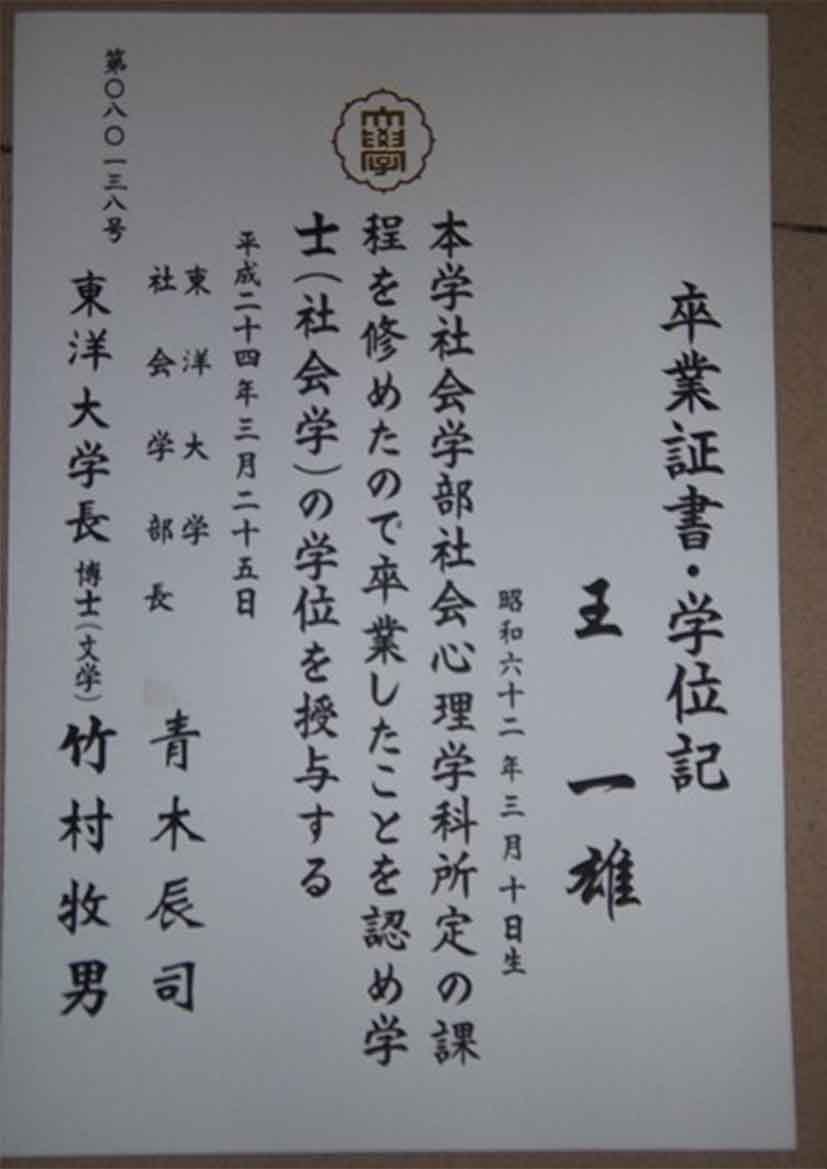 卒業証書・学位記
王 一雄
昭和六十二年三月十日生
本学社会学部社会心理学科所定の課
程を修めたので卒業したことを認め学
士(社会学)の学位を授与する
平成二十四年三月二十五日
東洋大学
社会学部長 青木辰司
東洋大学長 博士(文学) 竹村牧男
第〇八〇一三八号
大學